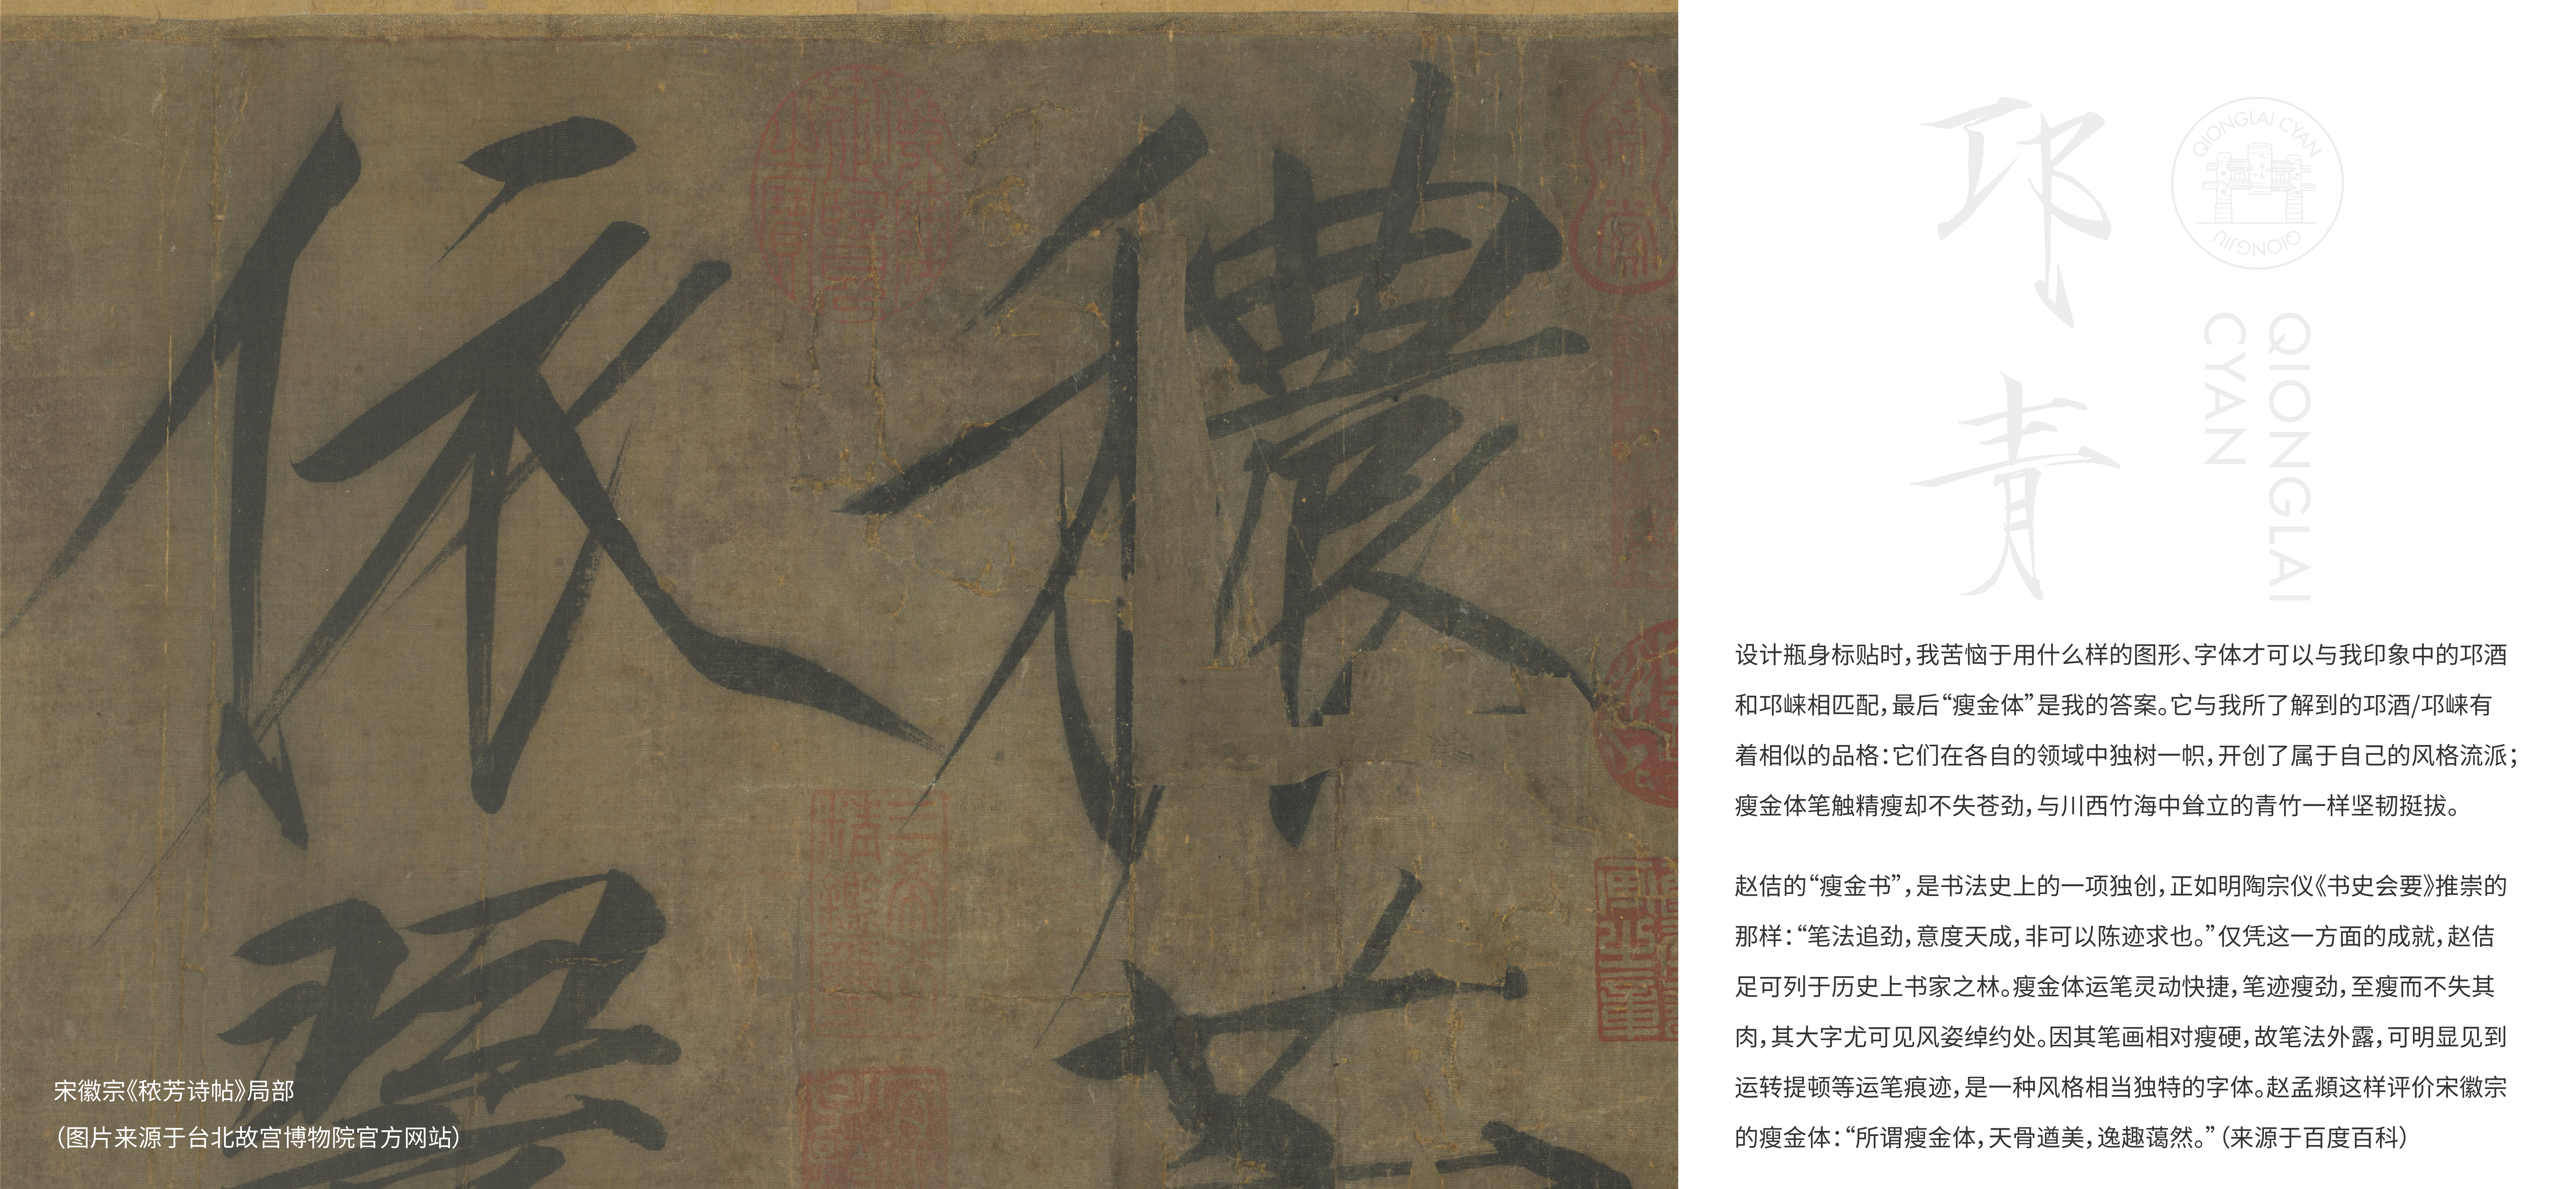 穠芳
依翠
宋徽宗《秾芳诗帖》局部
（图片来源于台北故宫博物院官方网站）
邛青
QIONGLAI CYAN
QIONGJIU
QIONGLAI
CYAN
设计瓶身标贴时，我苦恼于用什么样的图形、字体才可以与我印象中的邛酒
和邛崃相匹配，最后“瘦金体”是我的答案。它与我所了解到的邛酒/邛崃有
着相似的品格：它们在各自的领域中独树一帜，开创了属于自己的风格流派；
瘦金体笔触精瘦却不失苍劲，与川西竹海中耸立的青竹一样坚韧挺拔。
赵佶的“瘦金书”，是书法史上的一项独创，正如明陶宗仪《书史会要》推崇的
那样：“笔法追劲，意度天成，非可以陈迹求也。”仅凭这一方面的成就，赵佶
足可列于历史上书家之林。瘦金体运笔灵动快捷，笔迹瘦劲，至瘦而不失其
肉，其大字尤可见风姿绰约处。因其笔画相对瘦硬，故笔法外露，可明显见到
运转提顿等运笔痕迹，是一种风格相当独特的字体。赵孟頫这样评价宋徽宗
的瘦金体：“所谓瘦金体，天骨遒美，逸趣蔼然。”（来源于百度百科）